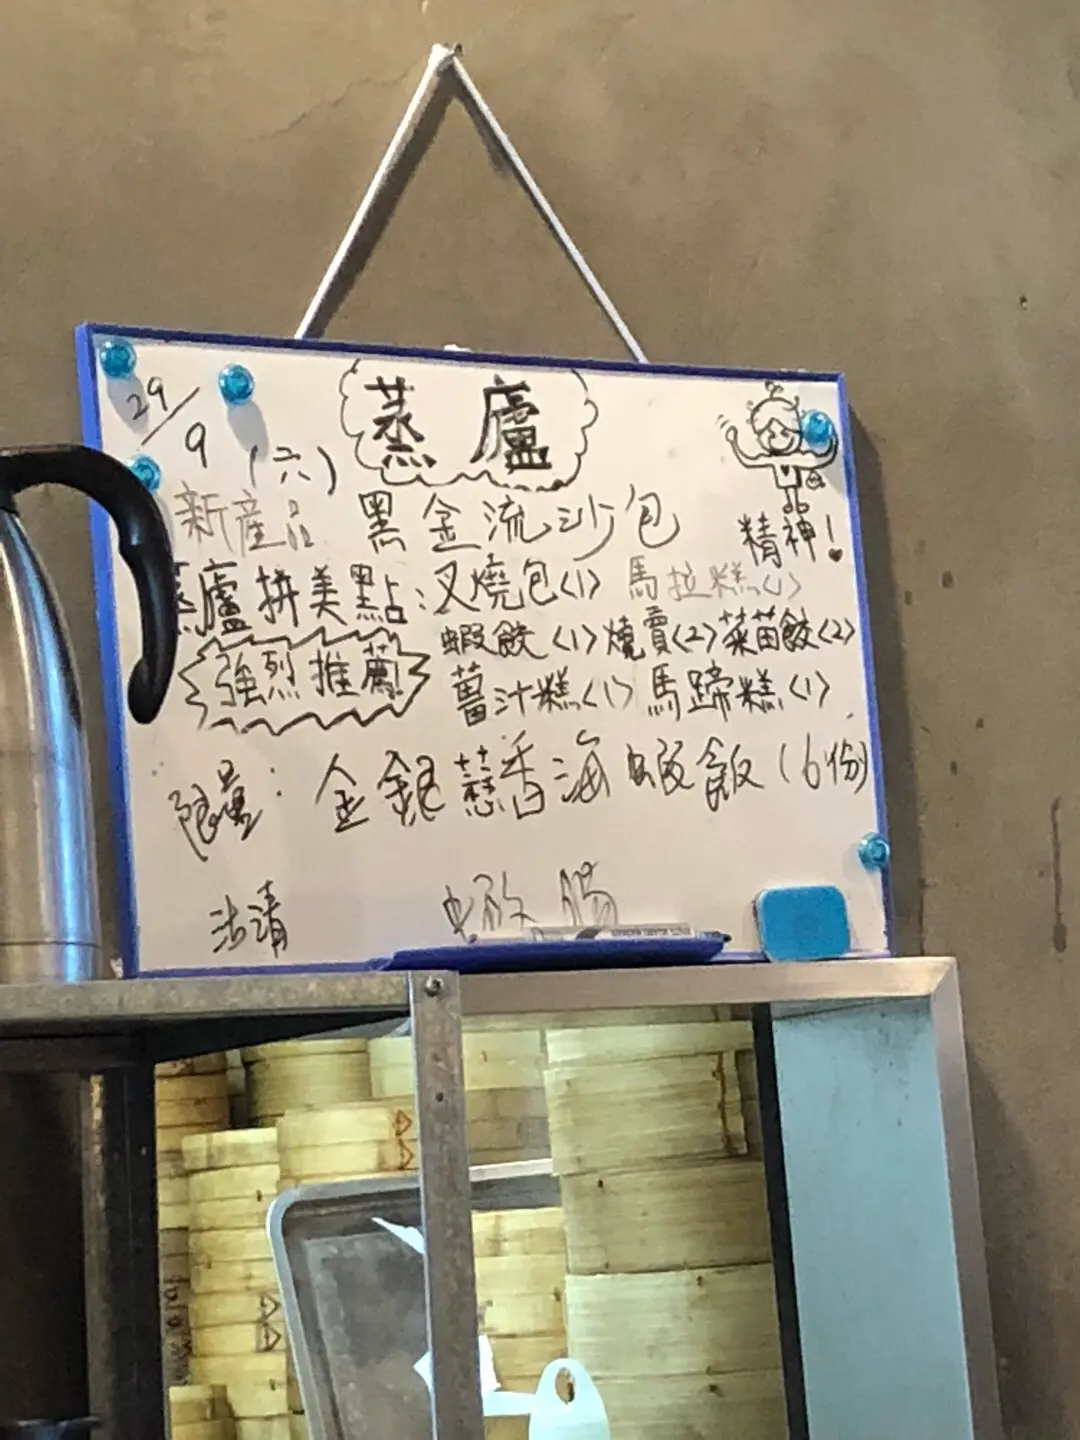 29/9 (六)
蒸廬
精神!
新產品 黑金流沙包
蒸廬拼美點:叉燒包<1> 馬拉糕<1>
強烈推薦
蝦餃<1>燒賣<2>菜苗餃<2>
薑汁糕<1>馬蹄糕<1>
限量: 金銀蒜香海蝦飯(6份)
沽清 蝦腸